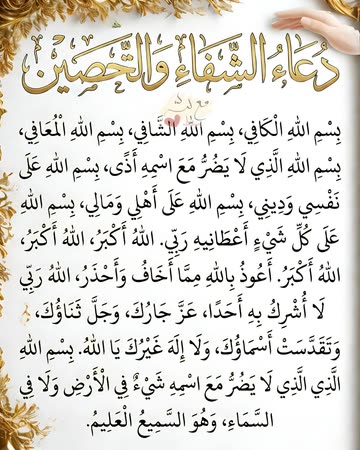 دُعَاءُ الشِّفَاءِ وَالتَّحْصِينِ
بِسْمِ اللهِ الْكَافِي، بِسْمِ اللهِ الشَّافِي، بِسْمِ اللهِ الْمُعَافِي،
بِسْمِ اللهِ الَّذِي لَا يَضُرُّ مَعَ اسْمِهِ أَذًى، بِسْمِ اللهِ عَلَى
نَفْسِي وَدِينِي، بِسْمِ اللهِ عَلَى أَهْلِي وَمَالِي، بِسْمِ اللهِ
عَلَى كُلِّ شَيْءٍ أَعْطَانِيهِ رَبِّي. اللهُ أَكْبَرُ، اللهُ أَكْبَرُ،
اللهُ أَكْبَرُ. أَعُوذُ بِاللهِ مِمَّا أَخَافُ وَأَحْذَرُ، اللهُ رَبِّي
لَا أُشْرِكُ بِهِ أَحَدًا، عَزَّ جَارُكَ، وَجَلَّ ثَنَاؤُكَ،
وَتَقَدَّسَتْ أَسْمَاؤُكَ، وَلَا إِلَهَ غَيْرُكَ يَا اللهُ. بِسْمِ اللهِ
الَّذِي الَّذِي لَا يَضُرُّ مَعَ اسْمِهِ شَيْءٌ فِي الْأَرْضِ وَلَا فِي
السَّمَاءِ، وَهُوَ السَّمِيعُ الْعَلِيمُ.